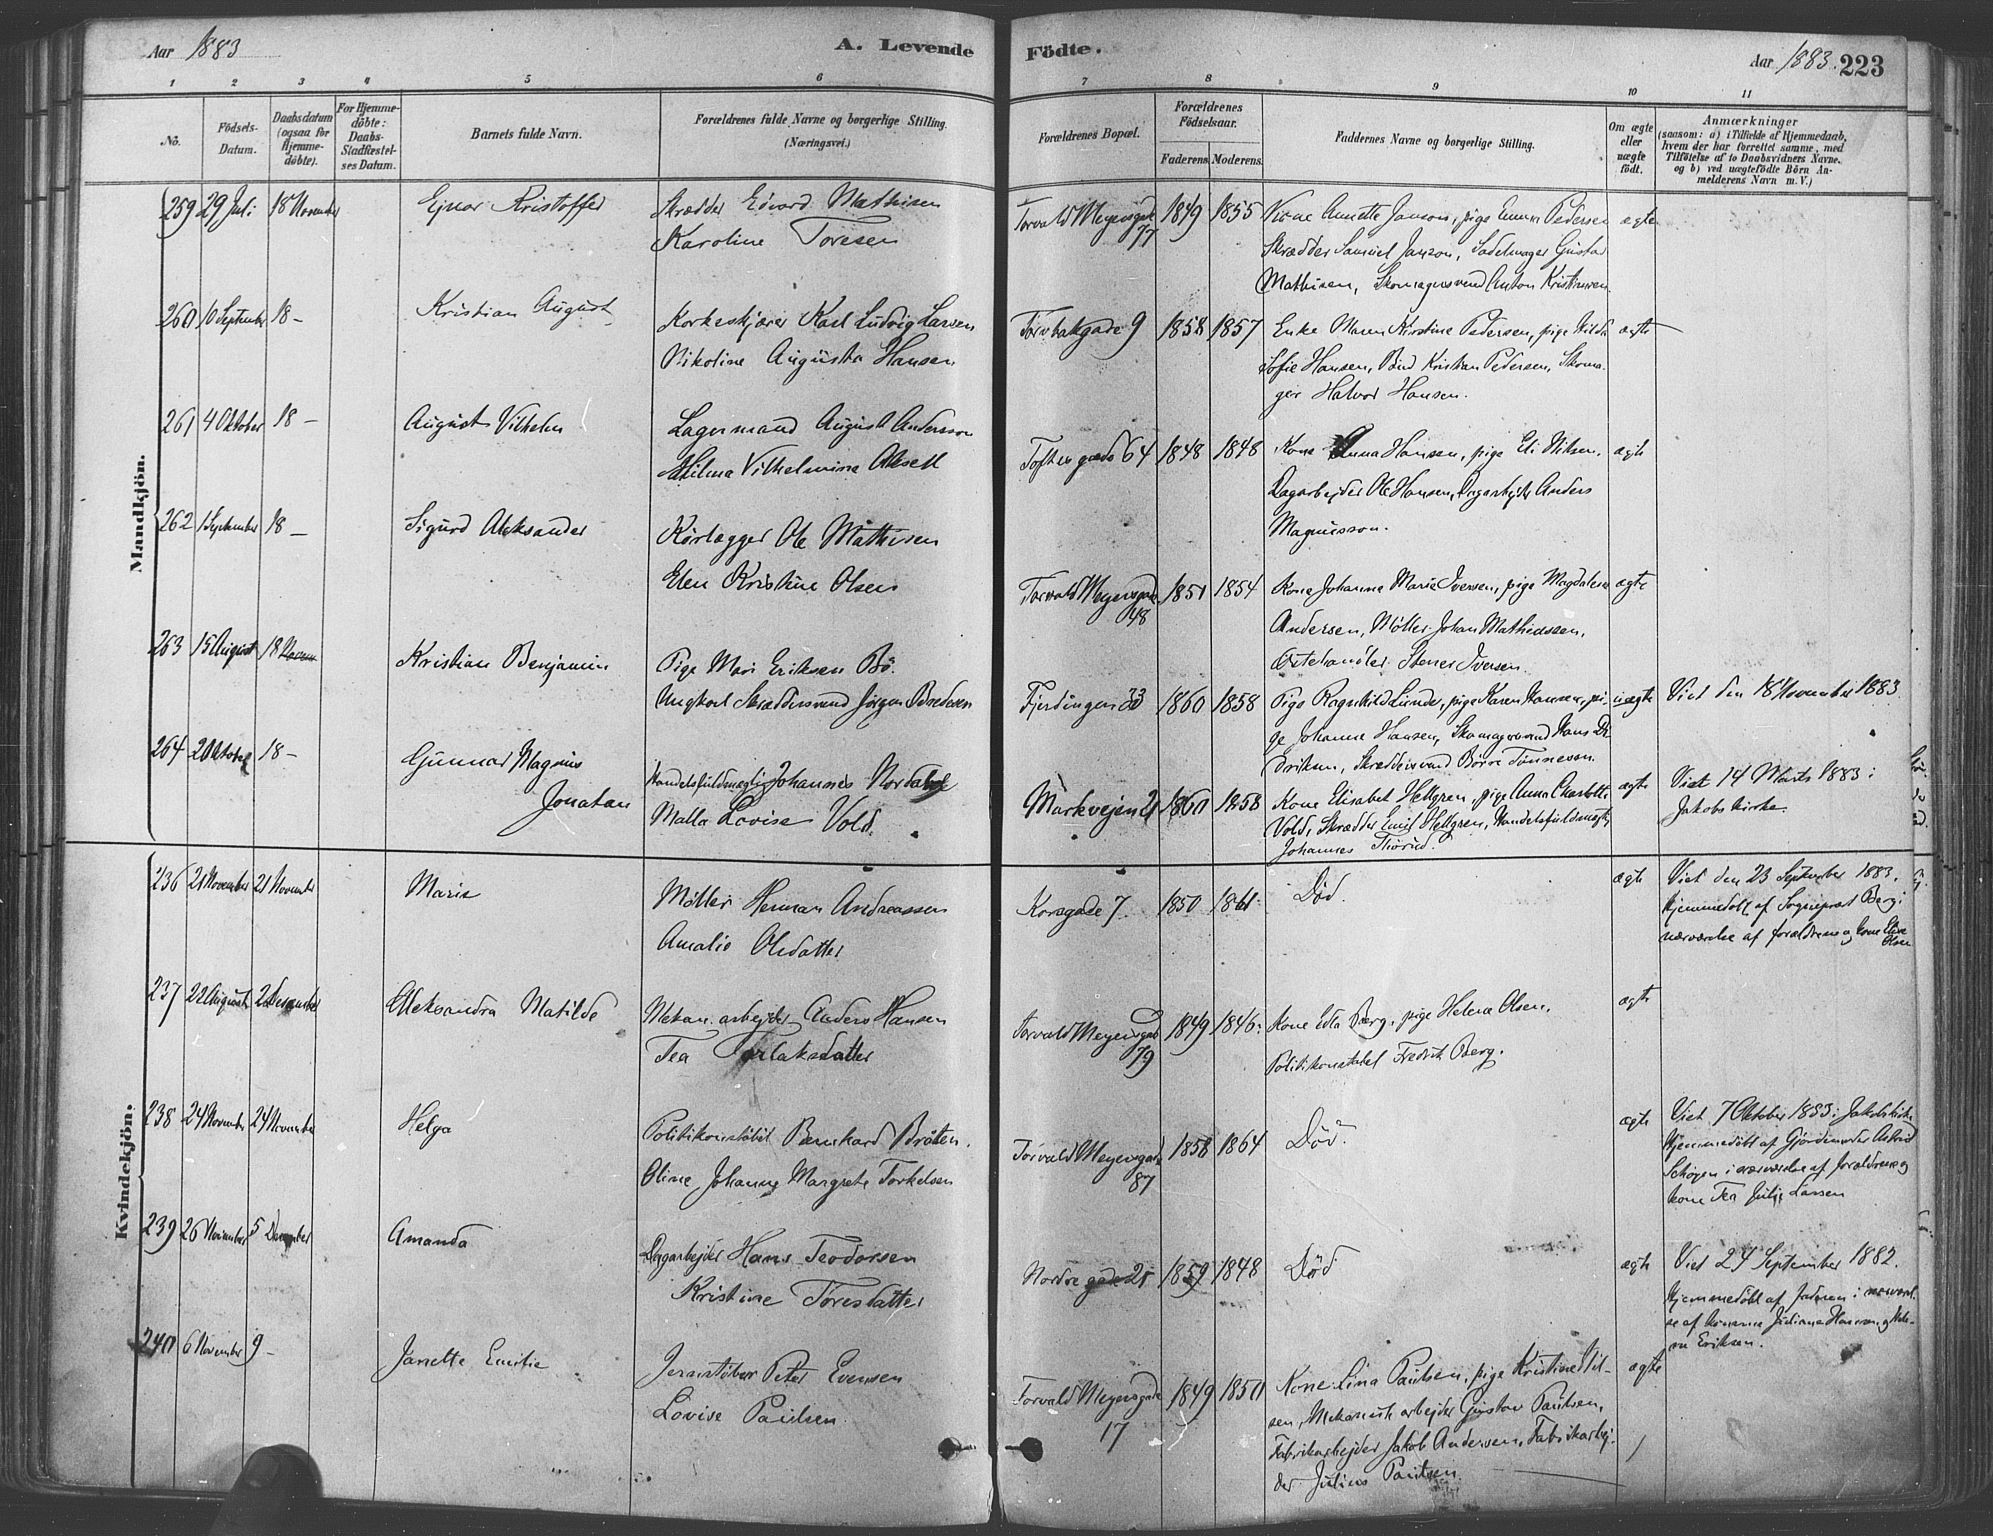 Aar 1883
A. Levende
1 2 3 4 5 6
No.
Födsels-
Datum.
Daabsdatum
(ogsaa for
Hjemme-
döbte).
For Hjemme-
döbte:
Daabs-
Stadfæstel-
ses Datum.
Barnets fulde Navn.
Forældrenes fulde Navne og borgerlige Stilling.
(Næringsvei.)
Mandkjön.
259 29 Juli 18 November Ejnar Kristoffer Skrædder Edvard Mathisen
Karoline Toresen
260 10 September 18 – Kristian August Korkeskjærer Karl Ludvig Larsen
Nikoline Augusta Hansen
261 4 Oktober 18 – August Vilhelm Lagermand August Andersson
Vilhelmine
262 1 September 18 – Sigurd Aleksander Ole Mathisen
Elen Kristine Olsen
263 15 August 18 Kristian Benjamin Pige Mari Eriksen Bö.
Ungkarl Skræddersvend Jörgen Bredesen
264 2 Oktober 18 – Gunnar Magnus
Jonatan
Johannes
Lovise Vold.
Kvindekjön.
236 21 November 21 November Marie Möller Herman Andreassen
Amalie Olsdatter
237 22 August 2 December Aleksandra Matilde Mekan. arbejder Anders Hansen
Tea
238 24 November 24 November Helga Politikonstabel Bernhard Bråten.
Oline Johanne Margrete Torkelsen
239 26 November 5 December Amanda Dagarbejder Hans Teodorsen
Kristine Toresdatter
240 6 November 9 – Janette Emilie Jernstöber Peter Evensen
Lovise Paulsen.
Födte.
Aar 1883. 223
7 8 9 10 11
Forældrenes Bopæl.
Forældrenes
Födselsaar.
Faderens. Moderens.
Faddernes Navne og borgerlige Stilling.
Om ægte
eller
uægte
födt.
Anmærkninger
(saasom: a) i Tilfælde af Hjemmedaab,
hvem der har forrettet samme, med
Tilföielse af to Daabsvidners Navne.
og b) ved uægtefödte Börn An-
melderens Navn m. V.)
Torvald Meyersgade
77 1849 1855 Annette Janson, pige Emma Pedersen ægte
Skrædder Samuel Janson, Sadelmager Gustav
Mathisen, Skomagersvend Anton Kristiansen.
9 1858 1857 Enke Maren Kirstine Pedersen, pige Hilda ægte
Sofie Hansen, Kristian Pedersen, Skoma-
ger Halvor Hansen.
Toftes gade 64 1848 1848 Kone Anna Hansen, pige Eli Nilsen, ægte
Dagarbejder Ole Hansen, Dagarbejder Anders
Magnusson.
Torvald Meyersgade
48 1851 1854 Kone Johanne Marie Iversen, pige Magdalene ægte
Andersen, Möller Johan Mathiassen,
Stener Iversen.
Fjerdingen 33 1860 1858 Pige Ragnhild Lunde, pige Karen Hansen, pi- uægte Viet den 18 November 1883.
ge Johanne Hansen, Skomagersvend Hans
Eriksen, Skræddersvend Börre Tönnesen.
Markvejen 21 1860 1858 Kone Elisabet Hellgren, pige Anna Charlotte ægte Viet 14 Marts 1883 i
Vold, Skrædder Emil Hellgren, Handelsfuldmægtig Jakobs kirke.
Johannes
Korsgade 7. 1850 1861 Död. ægte Viet den 23 September 1883.
Hjemmedöbt af Sogneprest Berg i
nærværelse af forældrene og kone Elise
Olsen
Torvald Meyersgade
79 1849 1846. Kone Berg, pige Helene Olsen, ægte
Politikonstabel Fredrik Berg.
Torvald Meyersgade
87 1858 1864 Död. ægte Viet 7 Oktober 1883 i Jakobs kirke
Hjemmedöbt af Gjordemoder Astrid
i nærværelse af forældrene og
kone Tea Julie Larsen
Nordre gade 21 1859 1848 Död ægte Viet 24 September 1882.
Hjemmedöbt af Jordm i nærværel-
se af konerne Juliane Hansen og
Eriksen.
Torvald Meyersgade
17 1849 1850 Kone Lina Paulsen, pige Kristine Nil- ægte
sen, Mekanisk arbejder Gustav Paulsen,
Fabrikarbejder Jakob Andersen, Fabrikarbej-
der Julius Paulsen.